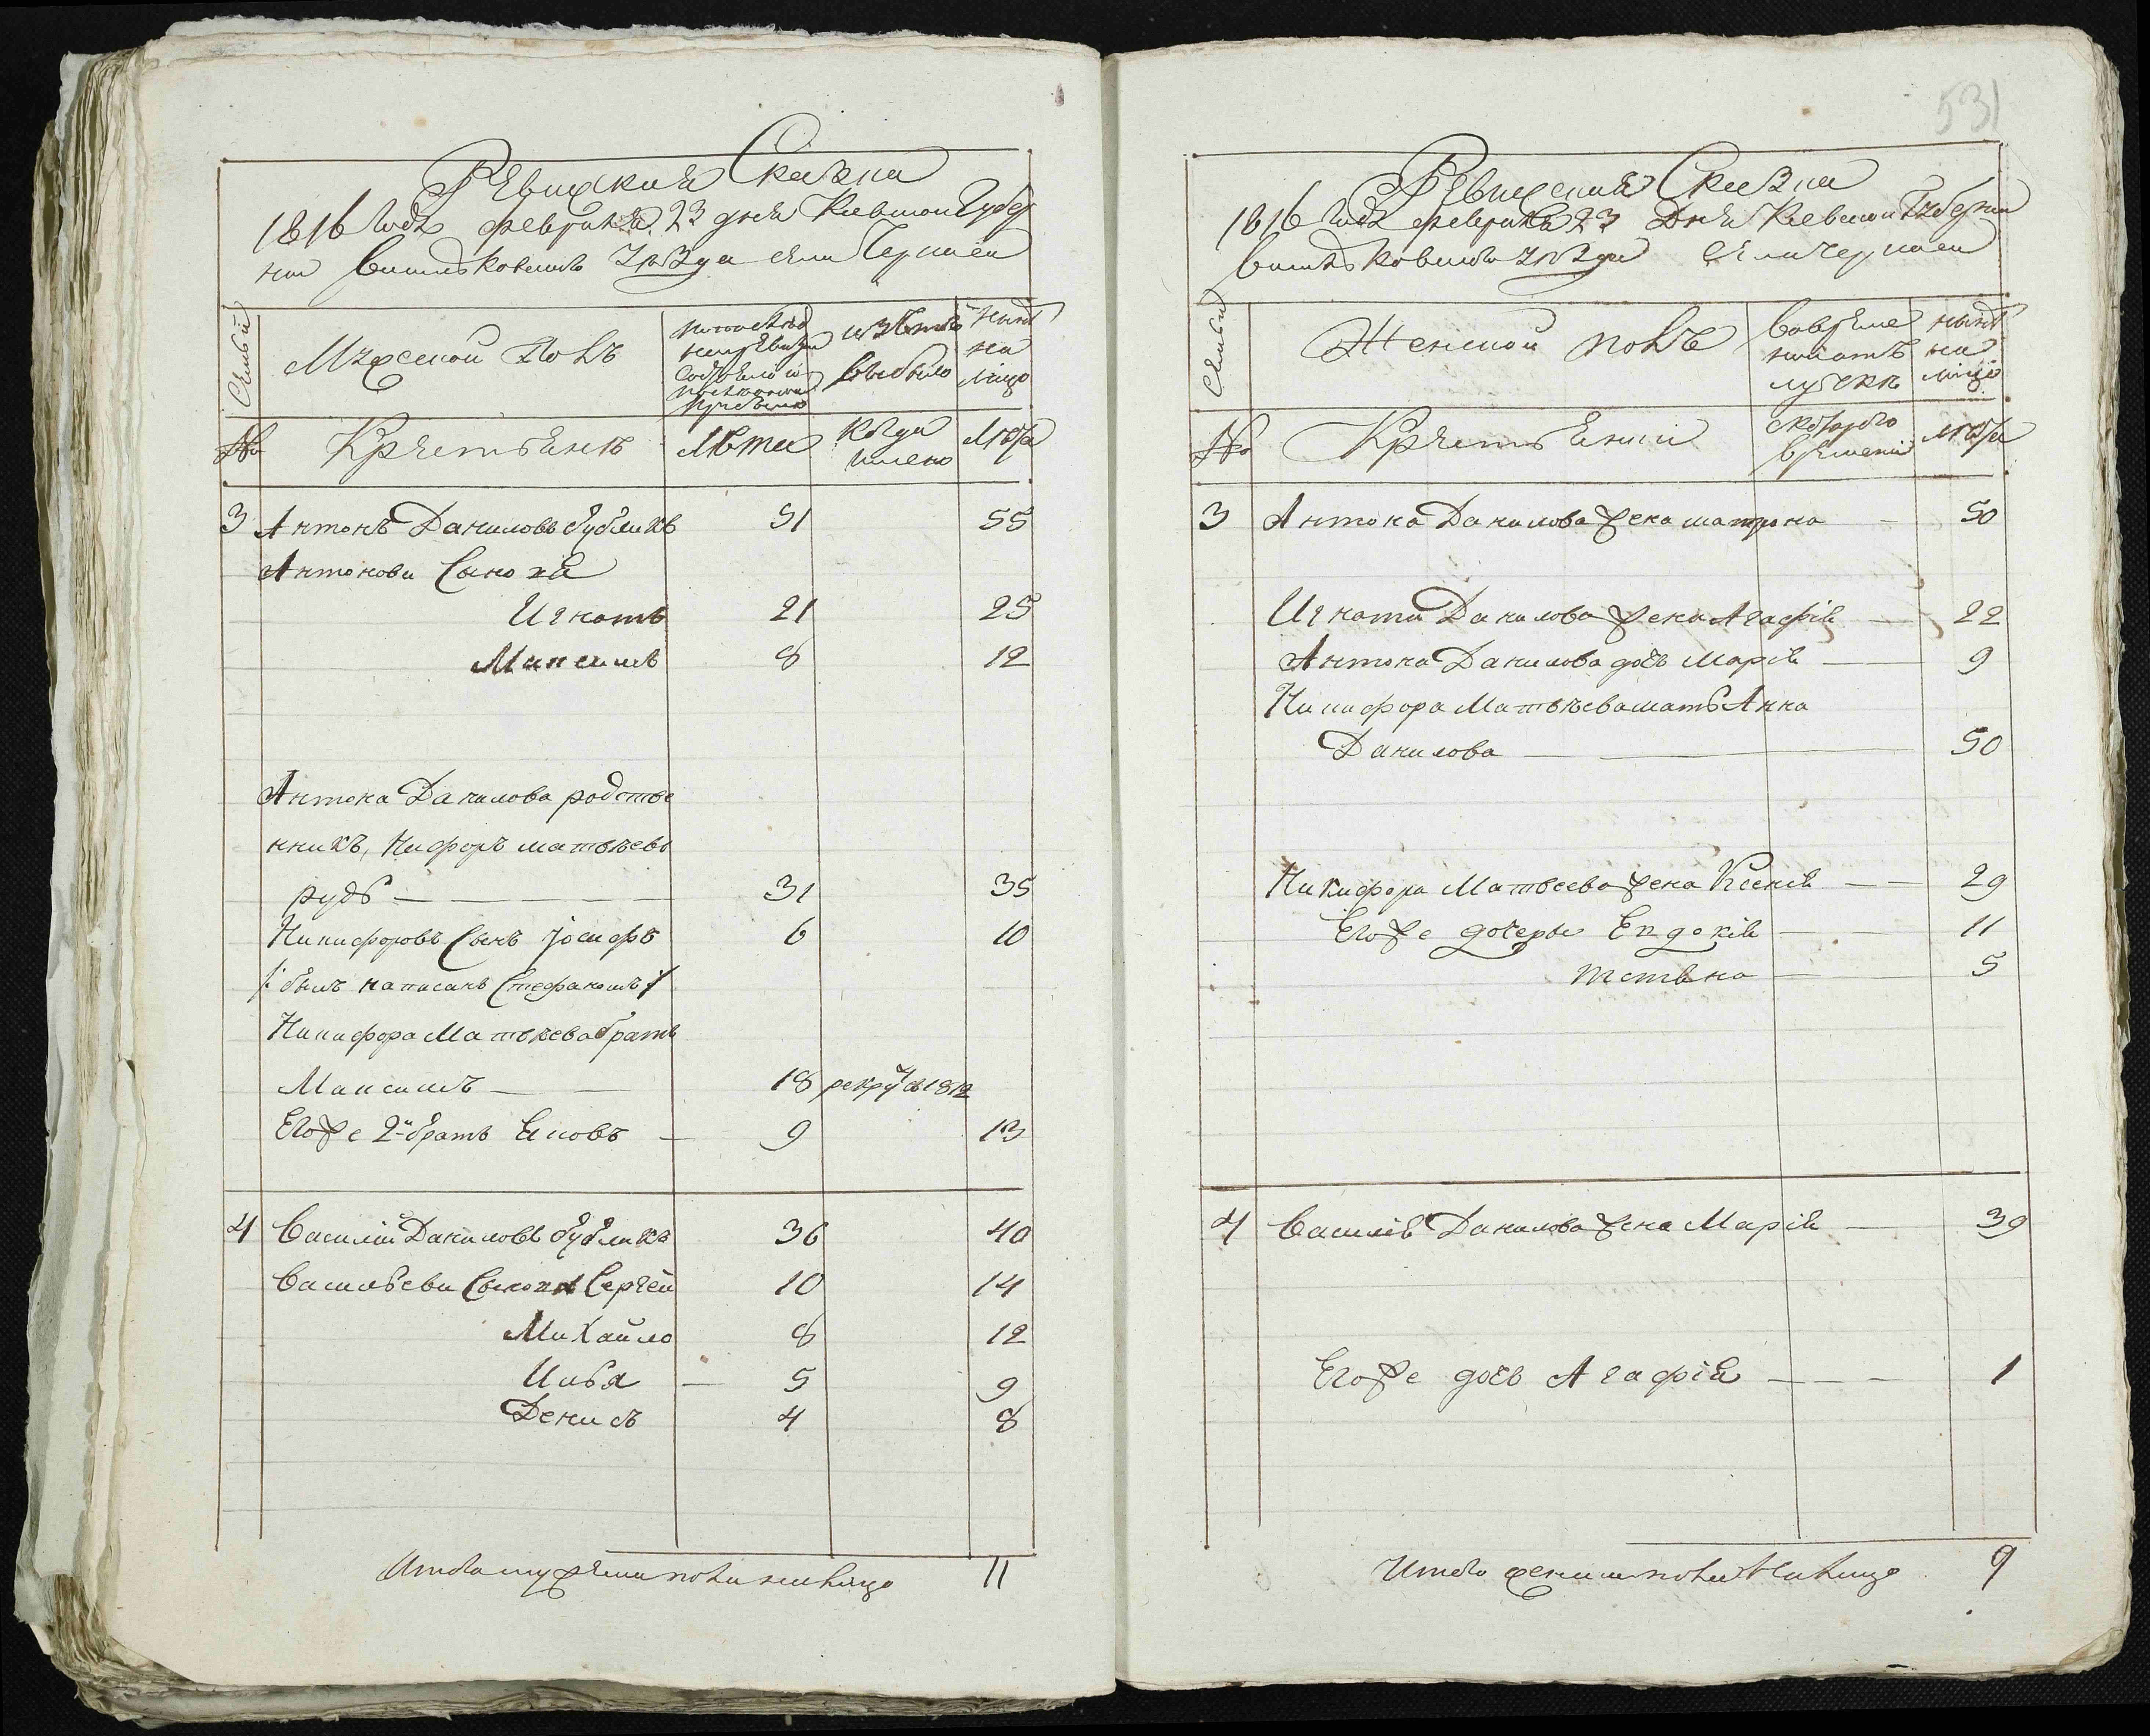 Ревизская Сказка
1816 Года февраля 23 дня Киевской Губер
нии Василковскаго уезда села Черной
Семьи
Мужеской Полъ
по последней
ней ревизии
состояло и
после оной
прибыло
изъ того
выбыло
ныне
на
лицо
№
Крестьянъ
Лета
когда
имено
Лета
3 Антонъ Даниловъ бубликъ 51 55
Антонови Сыновя
Игнатъ 21 25
Максимъ 8 12
Антона Данилова родстве
нникъ, Нифоръ матвеевъ
рудь 31 35
Никифоровъ Сынъ Јосифъ 6 10
/: былъ написанъ Стефаномъ :/
Никифора Матвеева братъ
Максимъ 18 рекру въ 1812
Егоже 2й братъ Яковъ 9 13
4 Василий Даниловъ бубликъ 36 40
Васильеви Сыновя Сергей 10 14
Михайло 8 12
Илья 5 9
Денисъ 4 8
Итого мужеска пола налицо 11
531
Ревизская Сказка
1816 Года февраля 23 Дня Киевской Губернии
Василковскаго уезда Села Черной
Семьи
Женской полъ
Вовремен
ной отъ
лучке
ныне
на
лицо
№
Крестьянки
скотораго
времени
лета
3 Антона Данилова жена матрона 50
Игната Данилова жена Агафія 22
Антона Данилова дочь Марія 9
Никифора Матвеева мать Анна
Данилова 50
Никифора Матвеева жена Ксенія 29
Егоже дочеры Евдокія 11
тетяна 5
4 Василія Данилова жена Марія 39
Егоже дочь Агафія 1
Итого женска пола Налицо 9